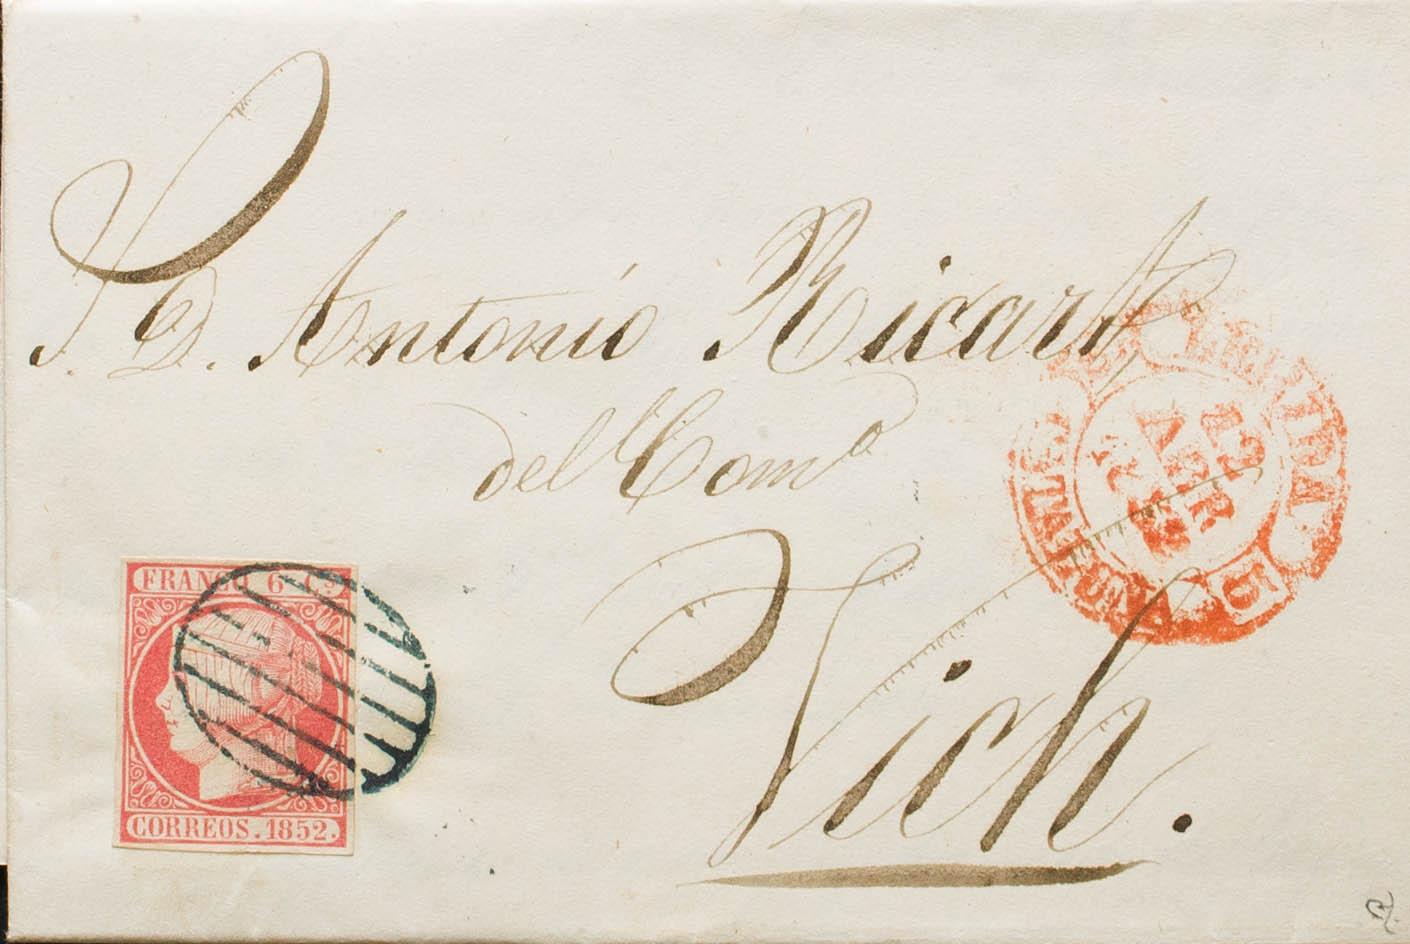 S. D. Antonio Ricart
del Comº
Vich.
FRANCO 6 CS
CORREOS. 1852.
12
ABR
CATALUÑA